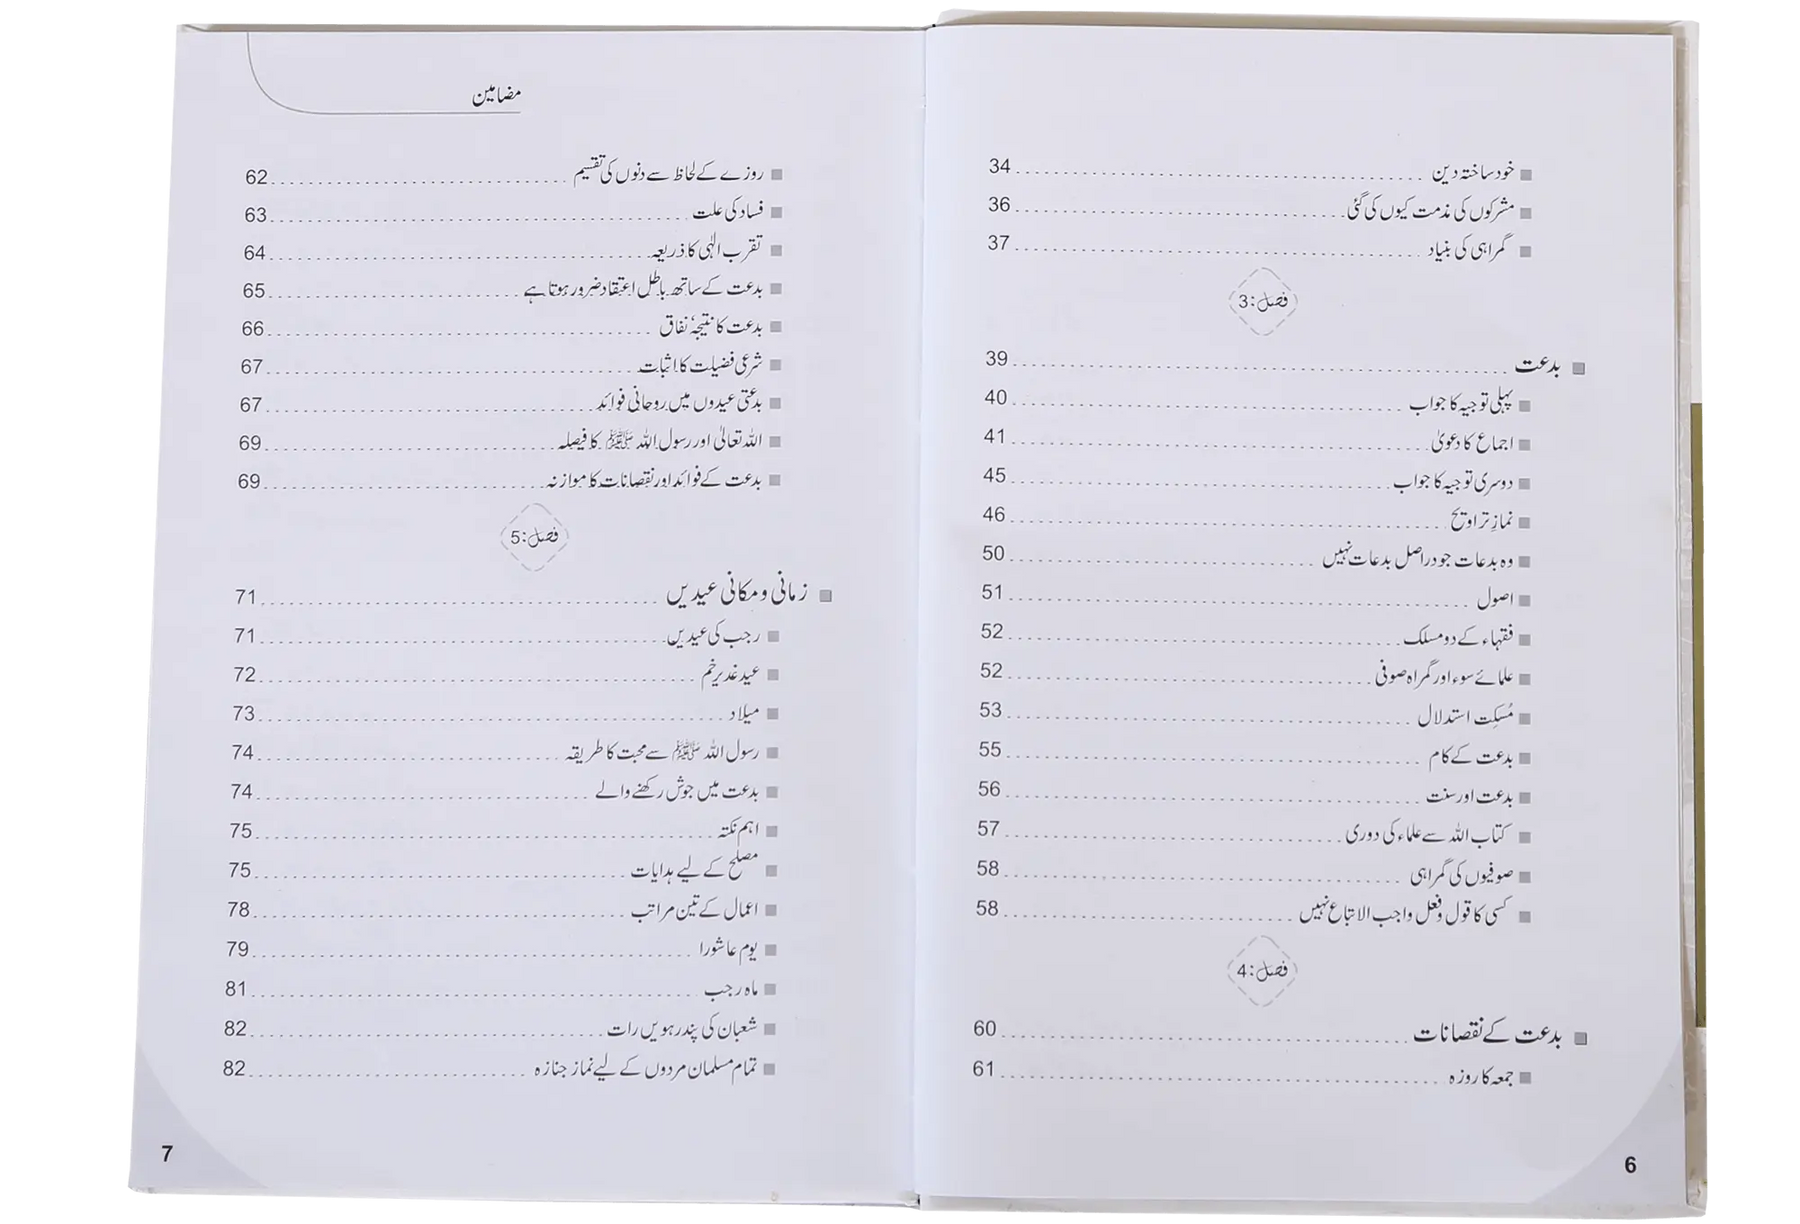 خود ساختہ دین ........ 34
مشرکوں کی مذمت کیوں کی گئی ........ 36
گمراہی کی بنیاد ........ 37
فصل: 3
بدعت ........ 39
پہلی توجیہ کا جواب ........ 40
اجماع کا دعویٰ ........ 41
دوسری توجیہ کا جواب ........ 45
نمازِ تراویح ........ 46
وہ بدعات جو دراصل بدعات نہیں ........ 50
اصول ........ 51
فقہاء کے دو مسلک ........ 52
علمائے سوء اور گمراہ صوفی ........ 52
مُسکِت استدلال ........ 53
بدعت کے کام ........ 55
بدعت اور سنت ........ 56
کتاب اللہ سے علماء کی دوری ........ 57
صوفیوں کی گمراہی ........ 58
کسی کا قول و فعل واجب الاتباع نہیں ........ 58
فصل: 4
بدعت کے نقصانات ........ 60
جمعہ کا روزہ ........ 61
6
مضامین
روزے کے لحاظ سے دنوں کی تقسیم ........ 62
فساد کی علت ........ 63
تقرب الٰہی کا ذریعہ ........ 64
بدعت کے ساتھ باطل اعتقاد ضرور ہوتا ہے ........ 65
بدعت کا نتیجہ نفاق ........ 66
شرعی فضیلت کا اثبات ........ 67
بدعتی عیدوں میں روحانی فوائد ........ 67
اللہ تعالیٰ اور رسول اللہ ﷺ کا فیصلہ ........ 69
بدعت کے فوائد اور نقصانات کا موازنہ ........ 69
فصل: 5
زمانی و مکانی عیدیں ........ 71
رجب کی عیدیں ........ 71
عید غدیر خم ........ 72
میلاد ........ 73
رسول اللہ ﷺ سے محبت کا طریقہ ........ 74
بدعت میں جوش رکھنے والے ........ 74
اہم نکتہ ........ 75
مصلح کے لیے ہدایات ........ 75
اعمال کے تین مراتب ........ 78
یوم عاشورا ........ 79
ماہ رجب ........ 81
شعبان کی پندرہویں رات ........ 82
تمام مسلمان مردوں کے لیے نماز جنازہ ........ 82
7